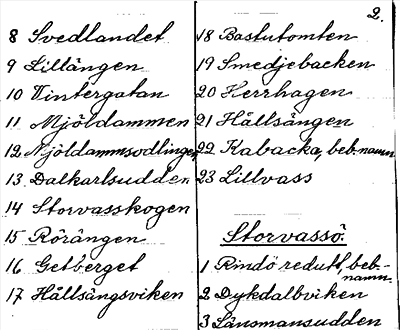 8 Svedlandet
9 Lillängen
10 Vintergatan
11 Mjöldammen
12 Mjöldammsodlingen
13 Dalkarlsudden
14 Storvasskogen
15 Rörängen
16 Getberget
17 Hållsängsviken
2.
18 Bastutomten
19 Smedjebacken
20 Herrhagen
21 Hållsängen
22 Kabacka, beb-namn
23 Lillvass
Storvassö.
1 Rindö redutt, beb-
namn.
2 Dykdalbviken
3 Länsmansudden